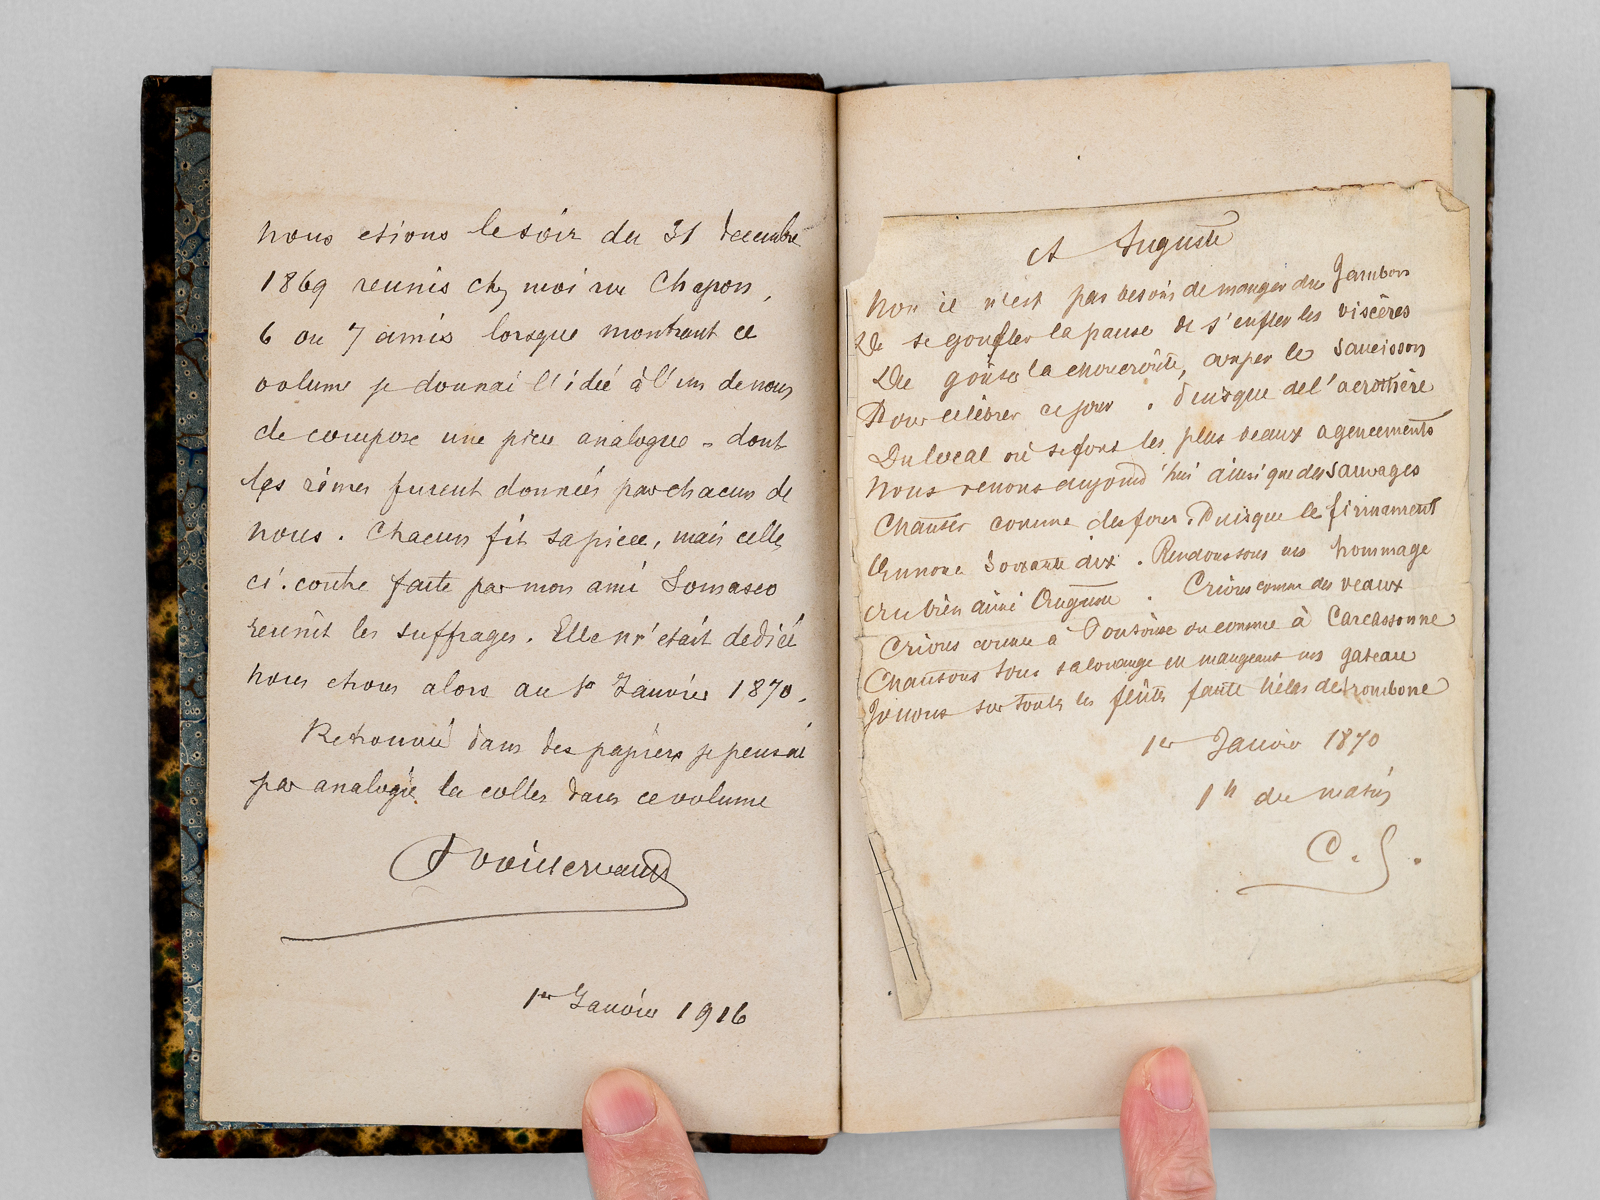 nous etions le soir du 31 decembre
1869 reunis chez moi rue Chapon,
6 ou 7 amis lorsque montrant ce
volume je donnai l'idée à l'un de nous
de compose une piece analogue - dont
les rimes furent données par chacun de
nous. Chacun fit sa piece, mais celle
ci-contre faite par mon ami
reunit les suffrages. Elle m'était dediée
nous etions alors au 1er Janvier 1870.
Retrouvé dans des papiers je pensai
par analogie la coller dans ce volume
1er Janvier 1916
A Auguste
Non il n'est pas besoin de manger du Jambon
De se gonfler la panse de s'enfler les viscères
De goûter la choucroûte, couper le saucisson
Pour célébrer ce jour. Puisque de l'
Du local où se font les plus beaux agencements
Nous venons aujourd'hui ainsi que des sauvages
Chanter comme des fous. Puisque le firmament
Annonce Soixante dix. Rendons tous nos hommage
Au bien aimé Auguste. Crions comme des veaux
Crions comme à Pontoise ou comme à Carcassonne
Chantons tous sa louange en mangeant nos gateau
Jouons sur toutes les flûtes faute hélas de trombone
1er Janvier 1870
1h du matin
C. S.